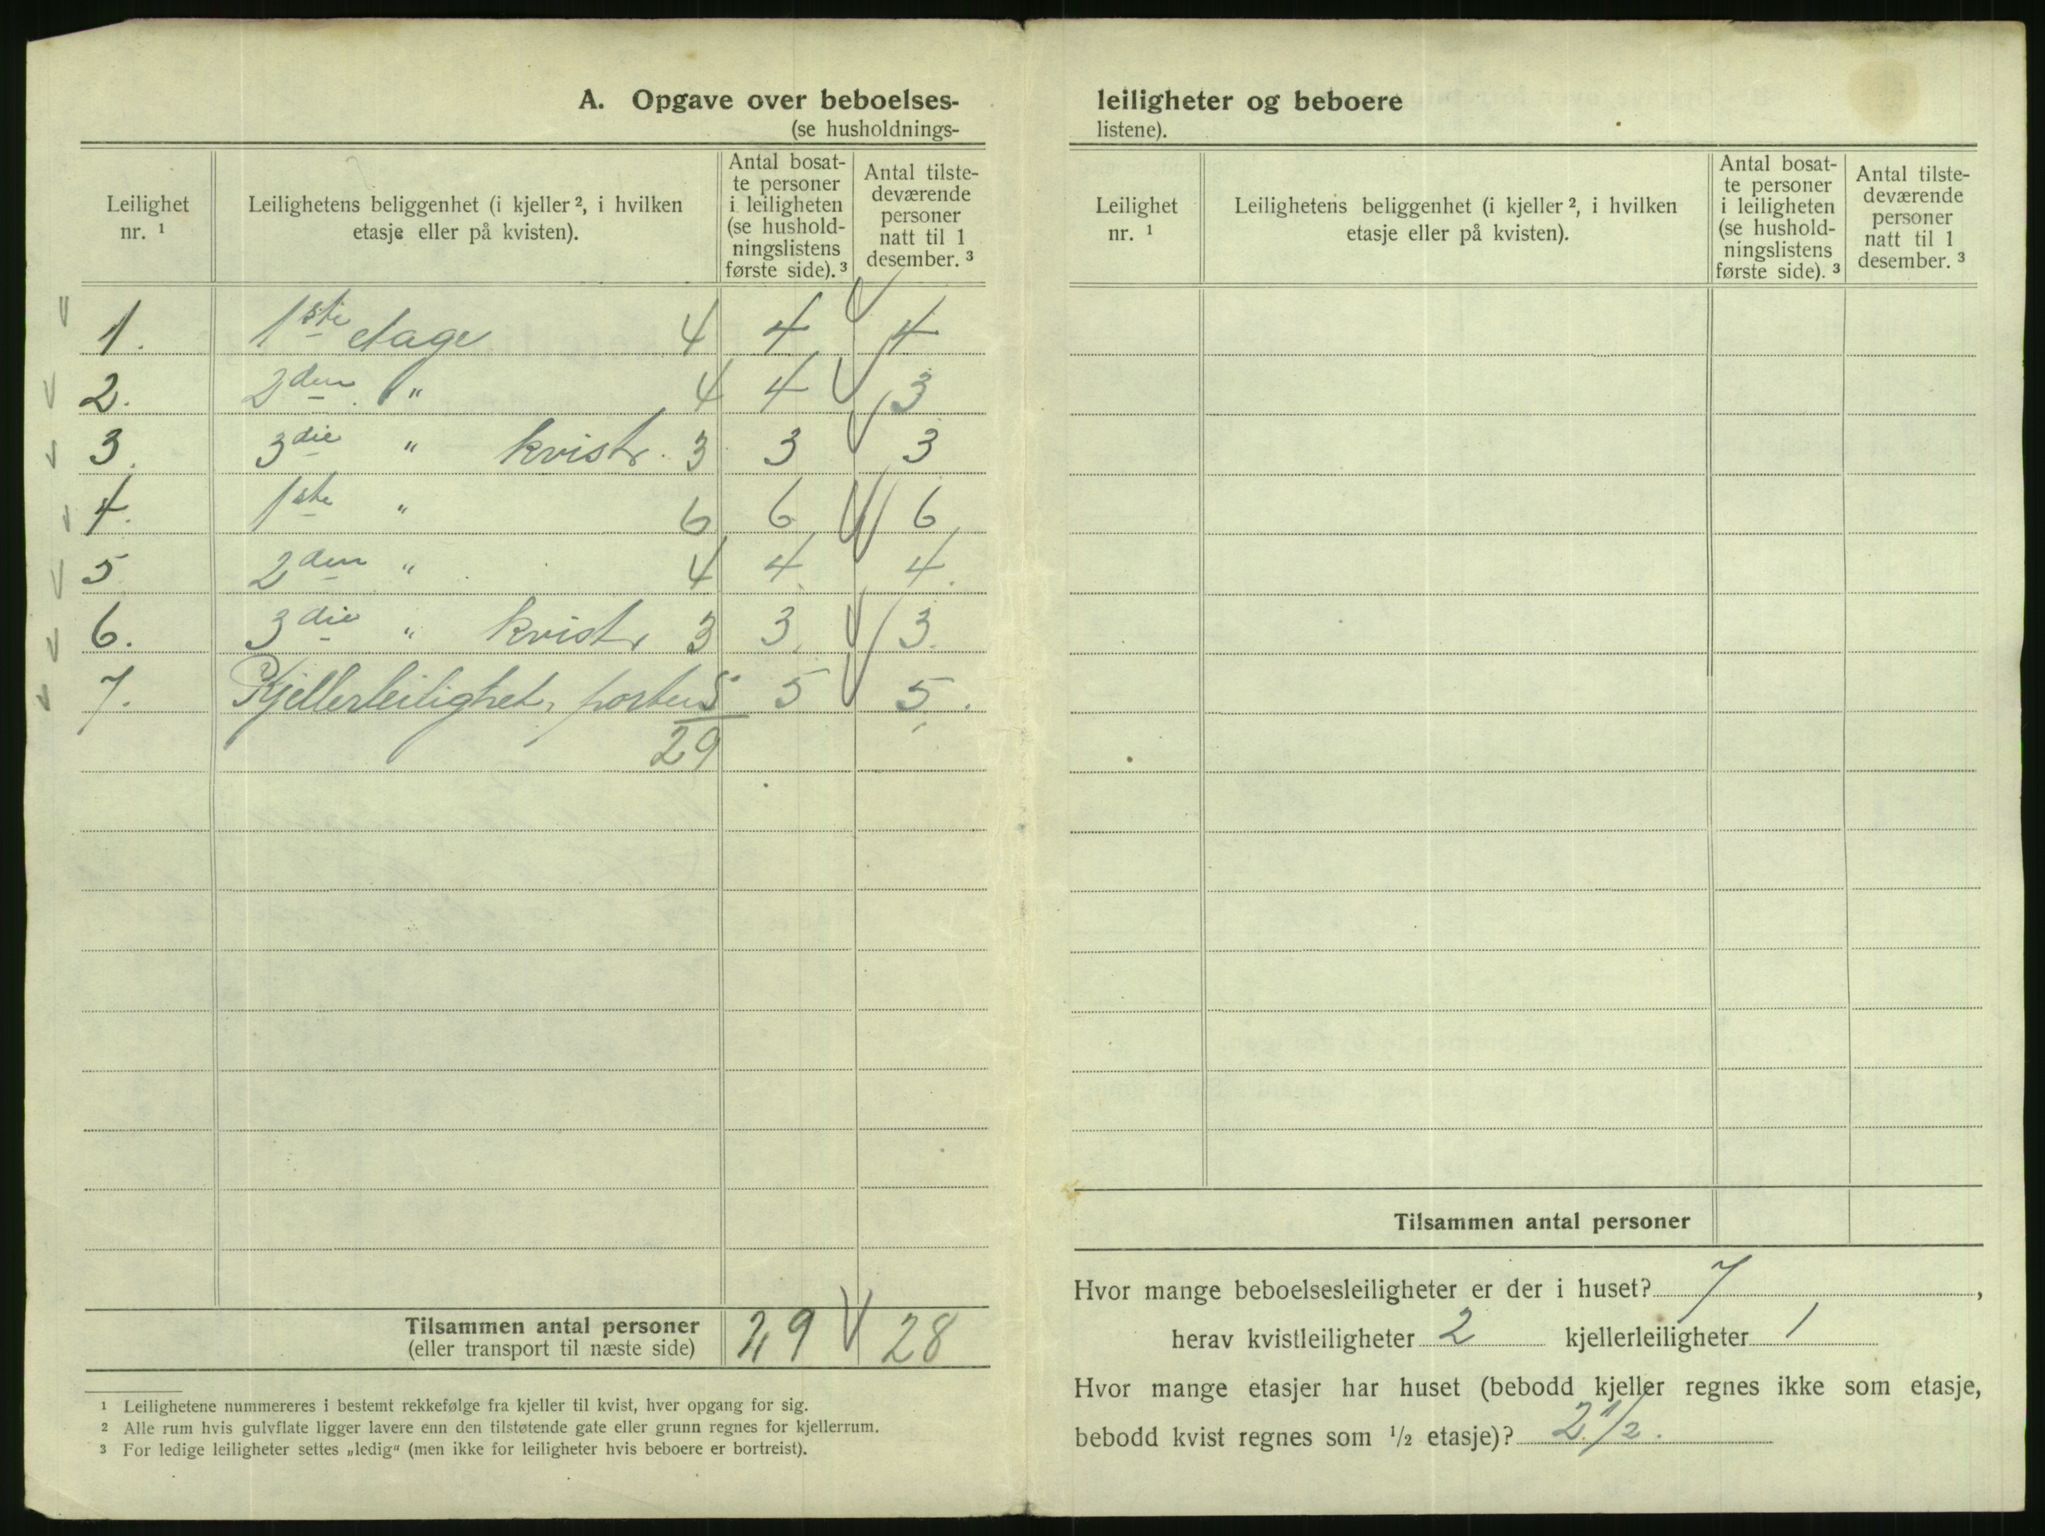 A. Opgave over beboelses-
(se husholdnings-
Leilighet nr. ¹
Leilighetens beliggenhet (i kjeller ², i hvilken etasje eller på kvisten).
Antal bosat-
te personer
i leiligheten
(se hushold-
ningslistens
første side). ³
Antal tilste-
deværende
personer
natt til 1
desember. ³
1. 1ste etage 4 4 4
2. 2den " 4 4 3
3. 3die " kvist. 3 3 3
4. 1ste " 6 6 6
5 2den " 4 4 4.
6. 3die " kvist. 3 3. 3.
7. Kjellerleilighet, 5 5 5.
29
Tilsammen antal personer 29 28
(eller transport til næste side)
¹ Leilighetene nummereres i bestemt rekkefølge fra kjeller til kvist, hver opgang for sig.
² Alle rum hvis gulvflate ligger lavere enn den tilstøtende gate eller grunn regnes for kjellerrum.
³ For ledige leiligheter settes „ledig“ (men ikke for leiligheter hvis beboere er bortreist).
leiligheter og beboere
listene).
Leilighet nr. ¹
Leilighetens beliggenhet (i kjeller ², i hvilken etasje eller på kvisten).
Antal bosat-
te personer
i leiligheten
(se hushold-
ningslistens
første side). ³
Antal tilste-
deværende
personer
natt til 1
desember. ³
Tilsammen antal personer
Hvor mange beboelsesleiligheter er der i huset? 7,
herav kvistleiligheter 2 kjellerleiligheter 1
Hvor mange etasjer har huset (bebodd kjeller regnes ikke som etasje,
bebodd kvist regnes som ½ etasje)? 2 1/2.